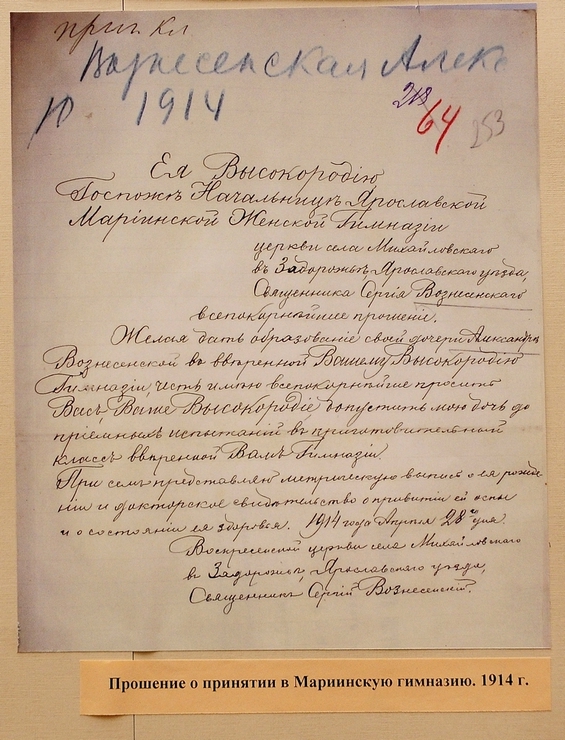 приг. кл
Вознесенская Алекс
1914
218
64 253
Ея Высокородію
Госпожѣ Начальницѣ Ярославской
Маріинской Женской Гимназіи
церкви села Михайловскаго
въ Задорожьѣ, Ярославскаго уѣзда,
Священника Сергія Вознесенскаго
всепокорнѣйшее прошеніе.
Желая дать образованіе своей дочери Александрѣ
Вознесенской въ ввѣренной Вашему Высокородію
Гимназіи, честь имѣю всепокорнѣйше просить
Васъ, Ваше Высокородіе допустить мою дочь до
пріемныхъ испытаній въ приготовительный
классъ ввѣренной Вамъ Гимназіи.
При семъ представляю метрическую выпись о ея рожде-
ніи и докторское свидѣтельство о привитіи ей оспы
и о состояніи ея здоровья. 1914 года Апрѣля 28 го дня.
Воскресенской церкви села Михайловскаго
въ Задорожьѣ, Ярославскаго уѣзда,
Священникъ Сергій Вознесенскій.
Прошение о принятии в Мариинскую гимназию. 1914 г.